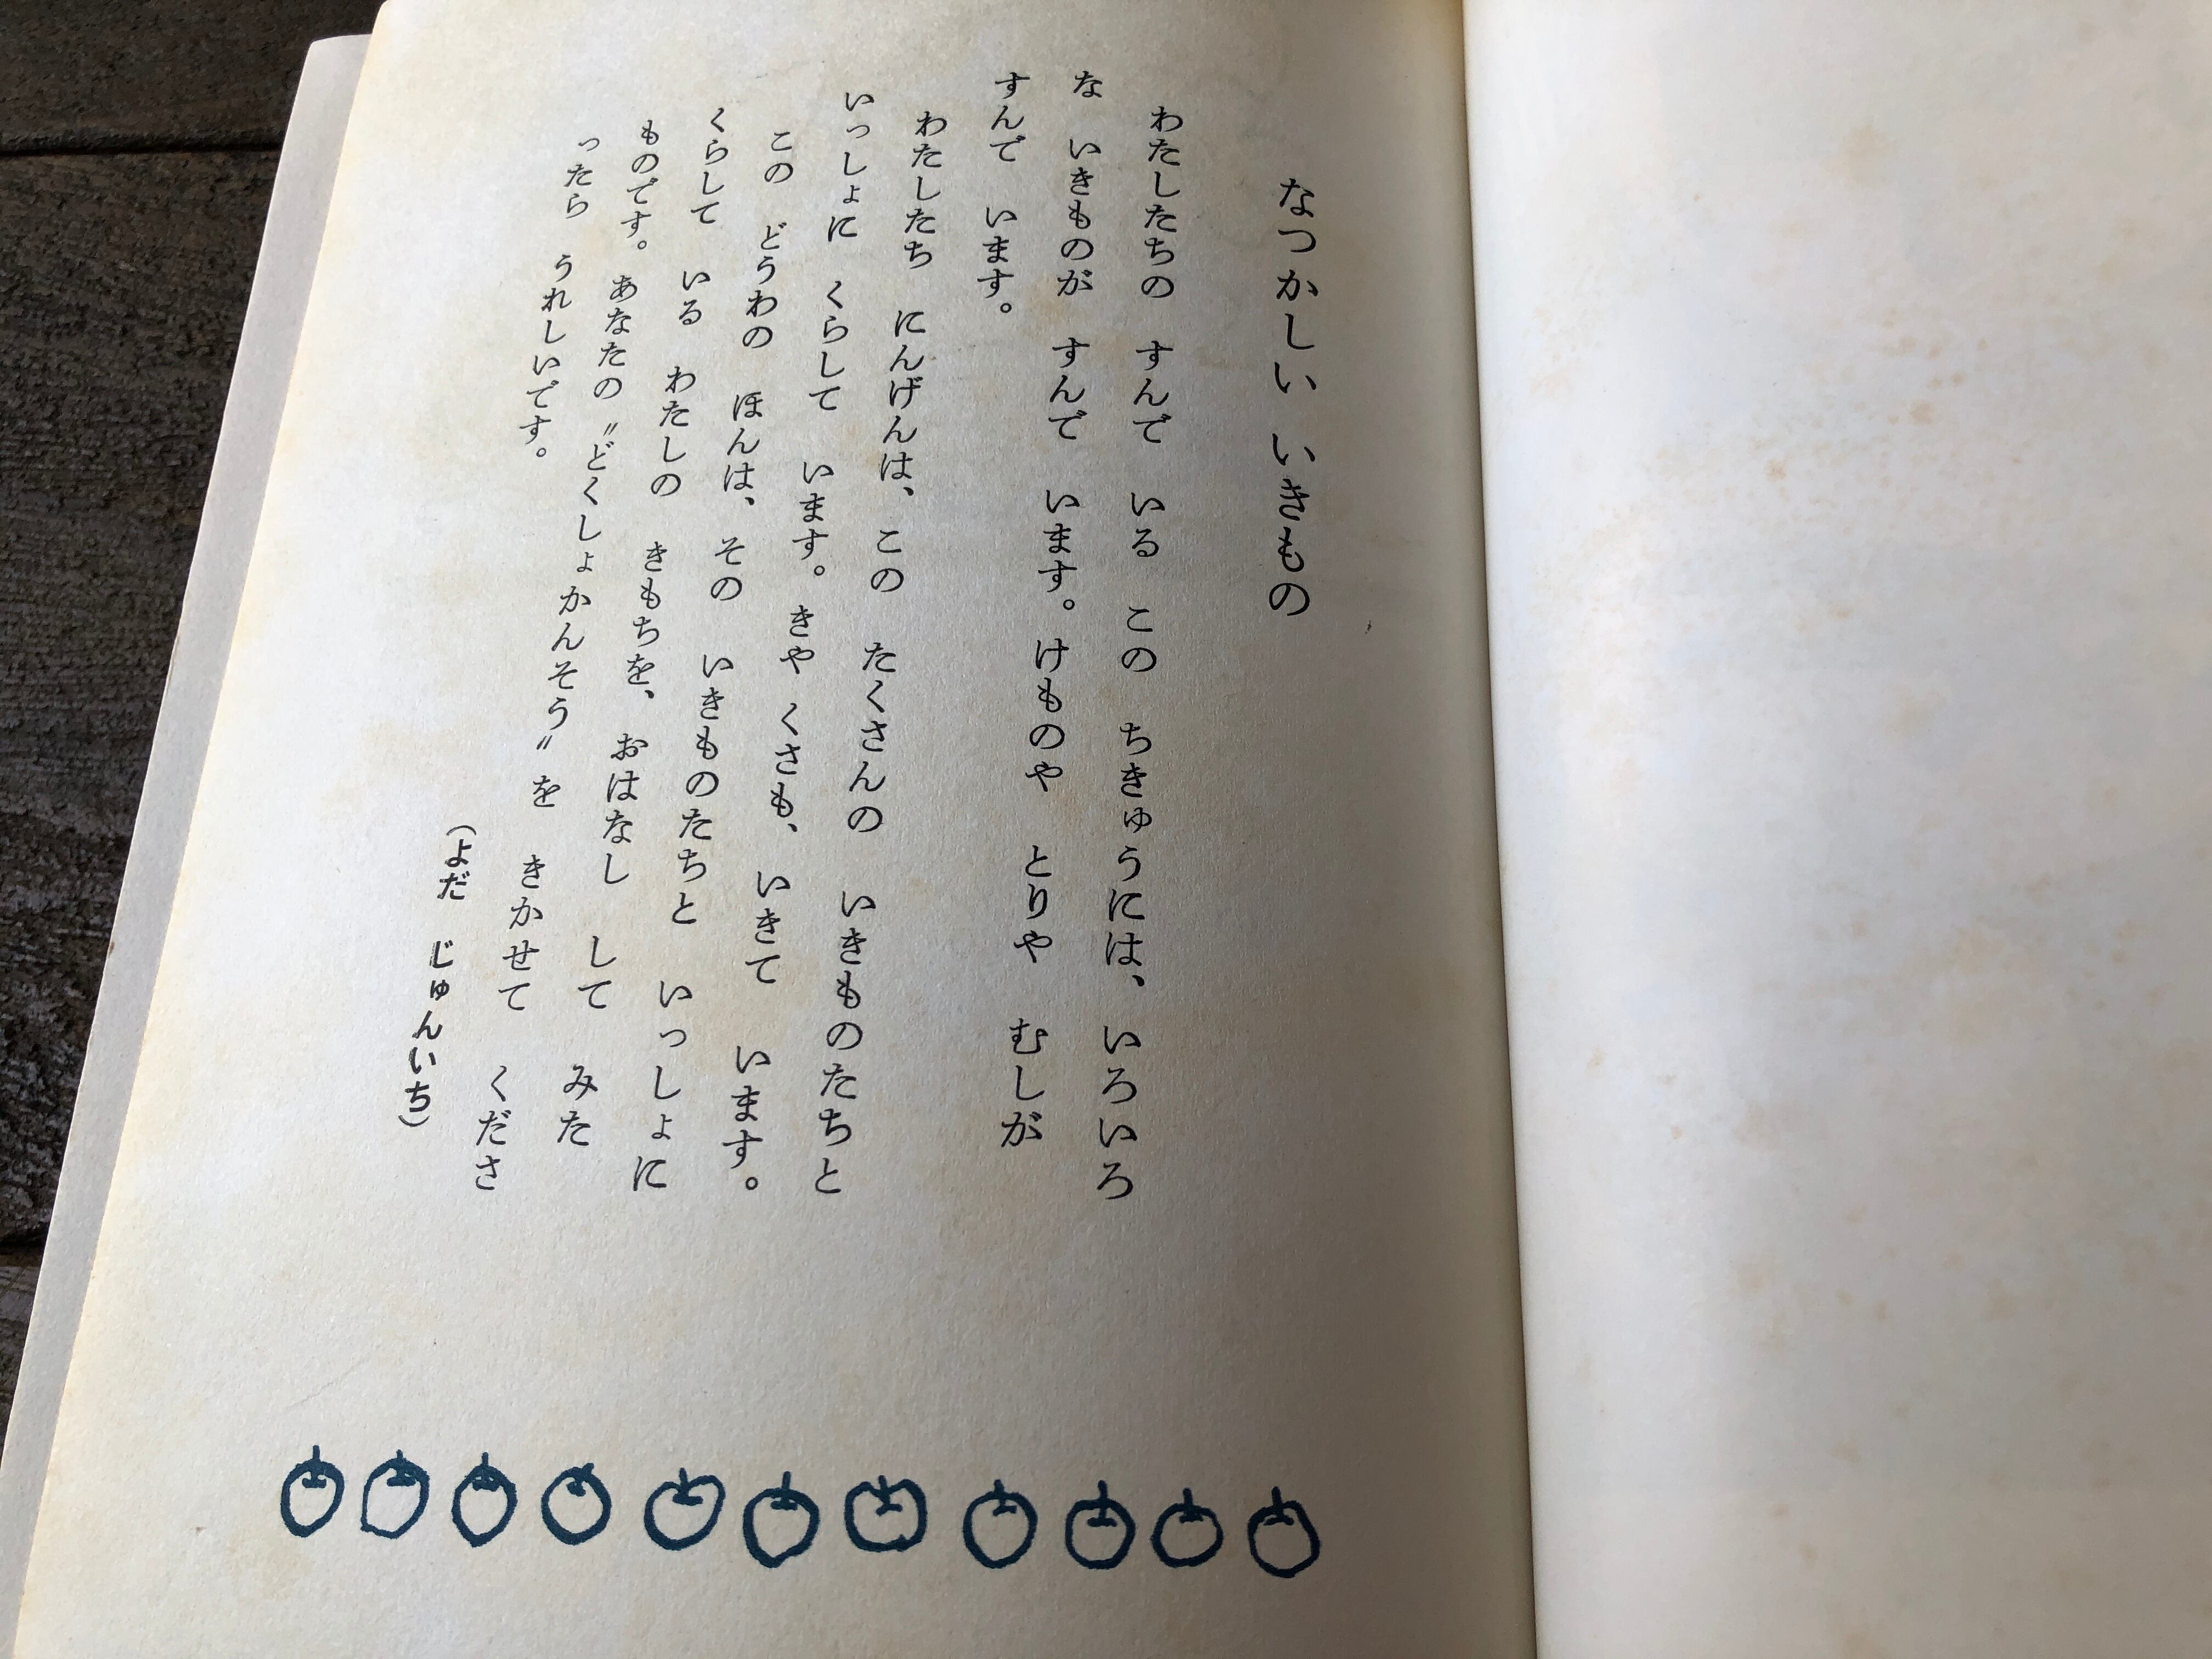 なつかしい いきもの
わたしたちの すんで いる この ちきゅうには、 いろいろ
な いきものが すんで います。けものや とりや むしが
すんで います。
わたしたち にんげんは、 この たくさんの いきものたちと
いっしょに くらして います。 きや くさも、 いきて います。
この どうわの ほんは、 その いきものたちと いっしょに
くらして いる わたしの きもちを、 おはなし して みた
ものです。 あなたの〝どくしょかんそう〟を きかせて くださ
ったら うれしいです。
(よだ じゅんいち)